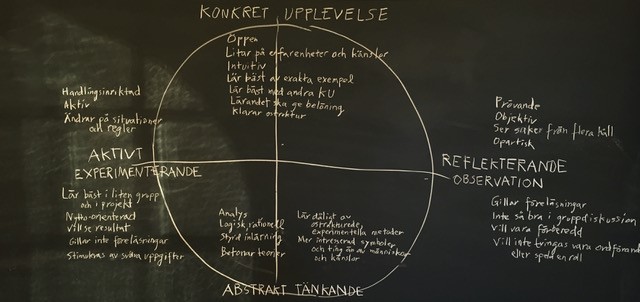 KONKRET UPPLEVELSE
Öppen
Litar på erfarenheter och känslor
Intuitiv
Lär bäst av exakta exempel
Lär bäst med andra KU
Lärandet ska ge belöning
Klarar ostruktur
Handlingsinriktad
Aktiv
Ändrar på situationer
och regler
AKTIVT
EXPERIMENTERANDE
Lär bäst i liten grupp
och i projekt
Nytto-orienterad
Vill se resultat
Gillar inte föreläsningar
Stimuleras av svåra uppgifter
Prövande
Objektiv
Ser saker från flera håll
Opartisk
REFLEKTERANDE
OBSERVATION
Gillar föreläsningar
Inte så bra i gruppdiskussion
Vill vara förberedd
Vill inte tvingas vara ordförande
eller spela en roll
Analys
Logisk, rationell
Styrd inlärning
Betonar teorier
Lär dåligt av
ostrukturerade,
experimentella metoder
Mer intresserad symboler
och ting än av människor
och känslor
ABSTRAKT TÄNKANDE